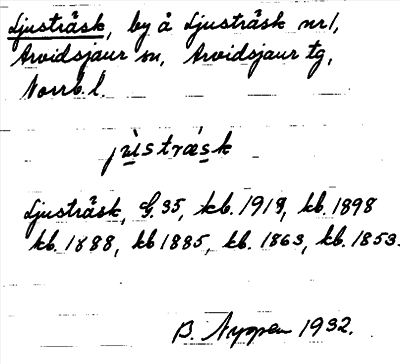 Ljusträsk, by å Ljusträsk nr 1,
Arvidsjaur sn, Arvidsjaur tg,
Norrb. l.
jùsträsk
Ljusträsk, G. 35, kb. 1919, kb. 1898
kb. 1888, kb 1885, kb. 1863, kb. 1853.
B. Nyman 1932.